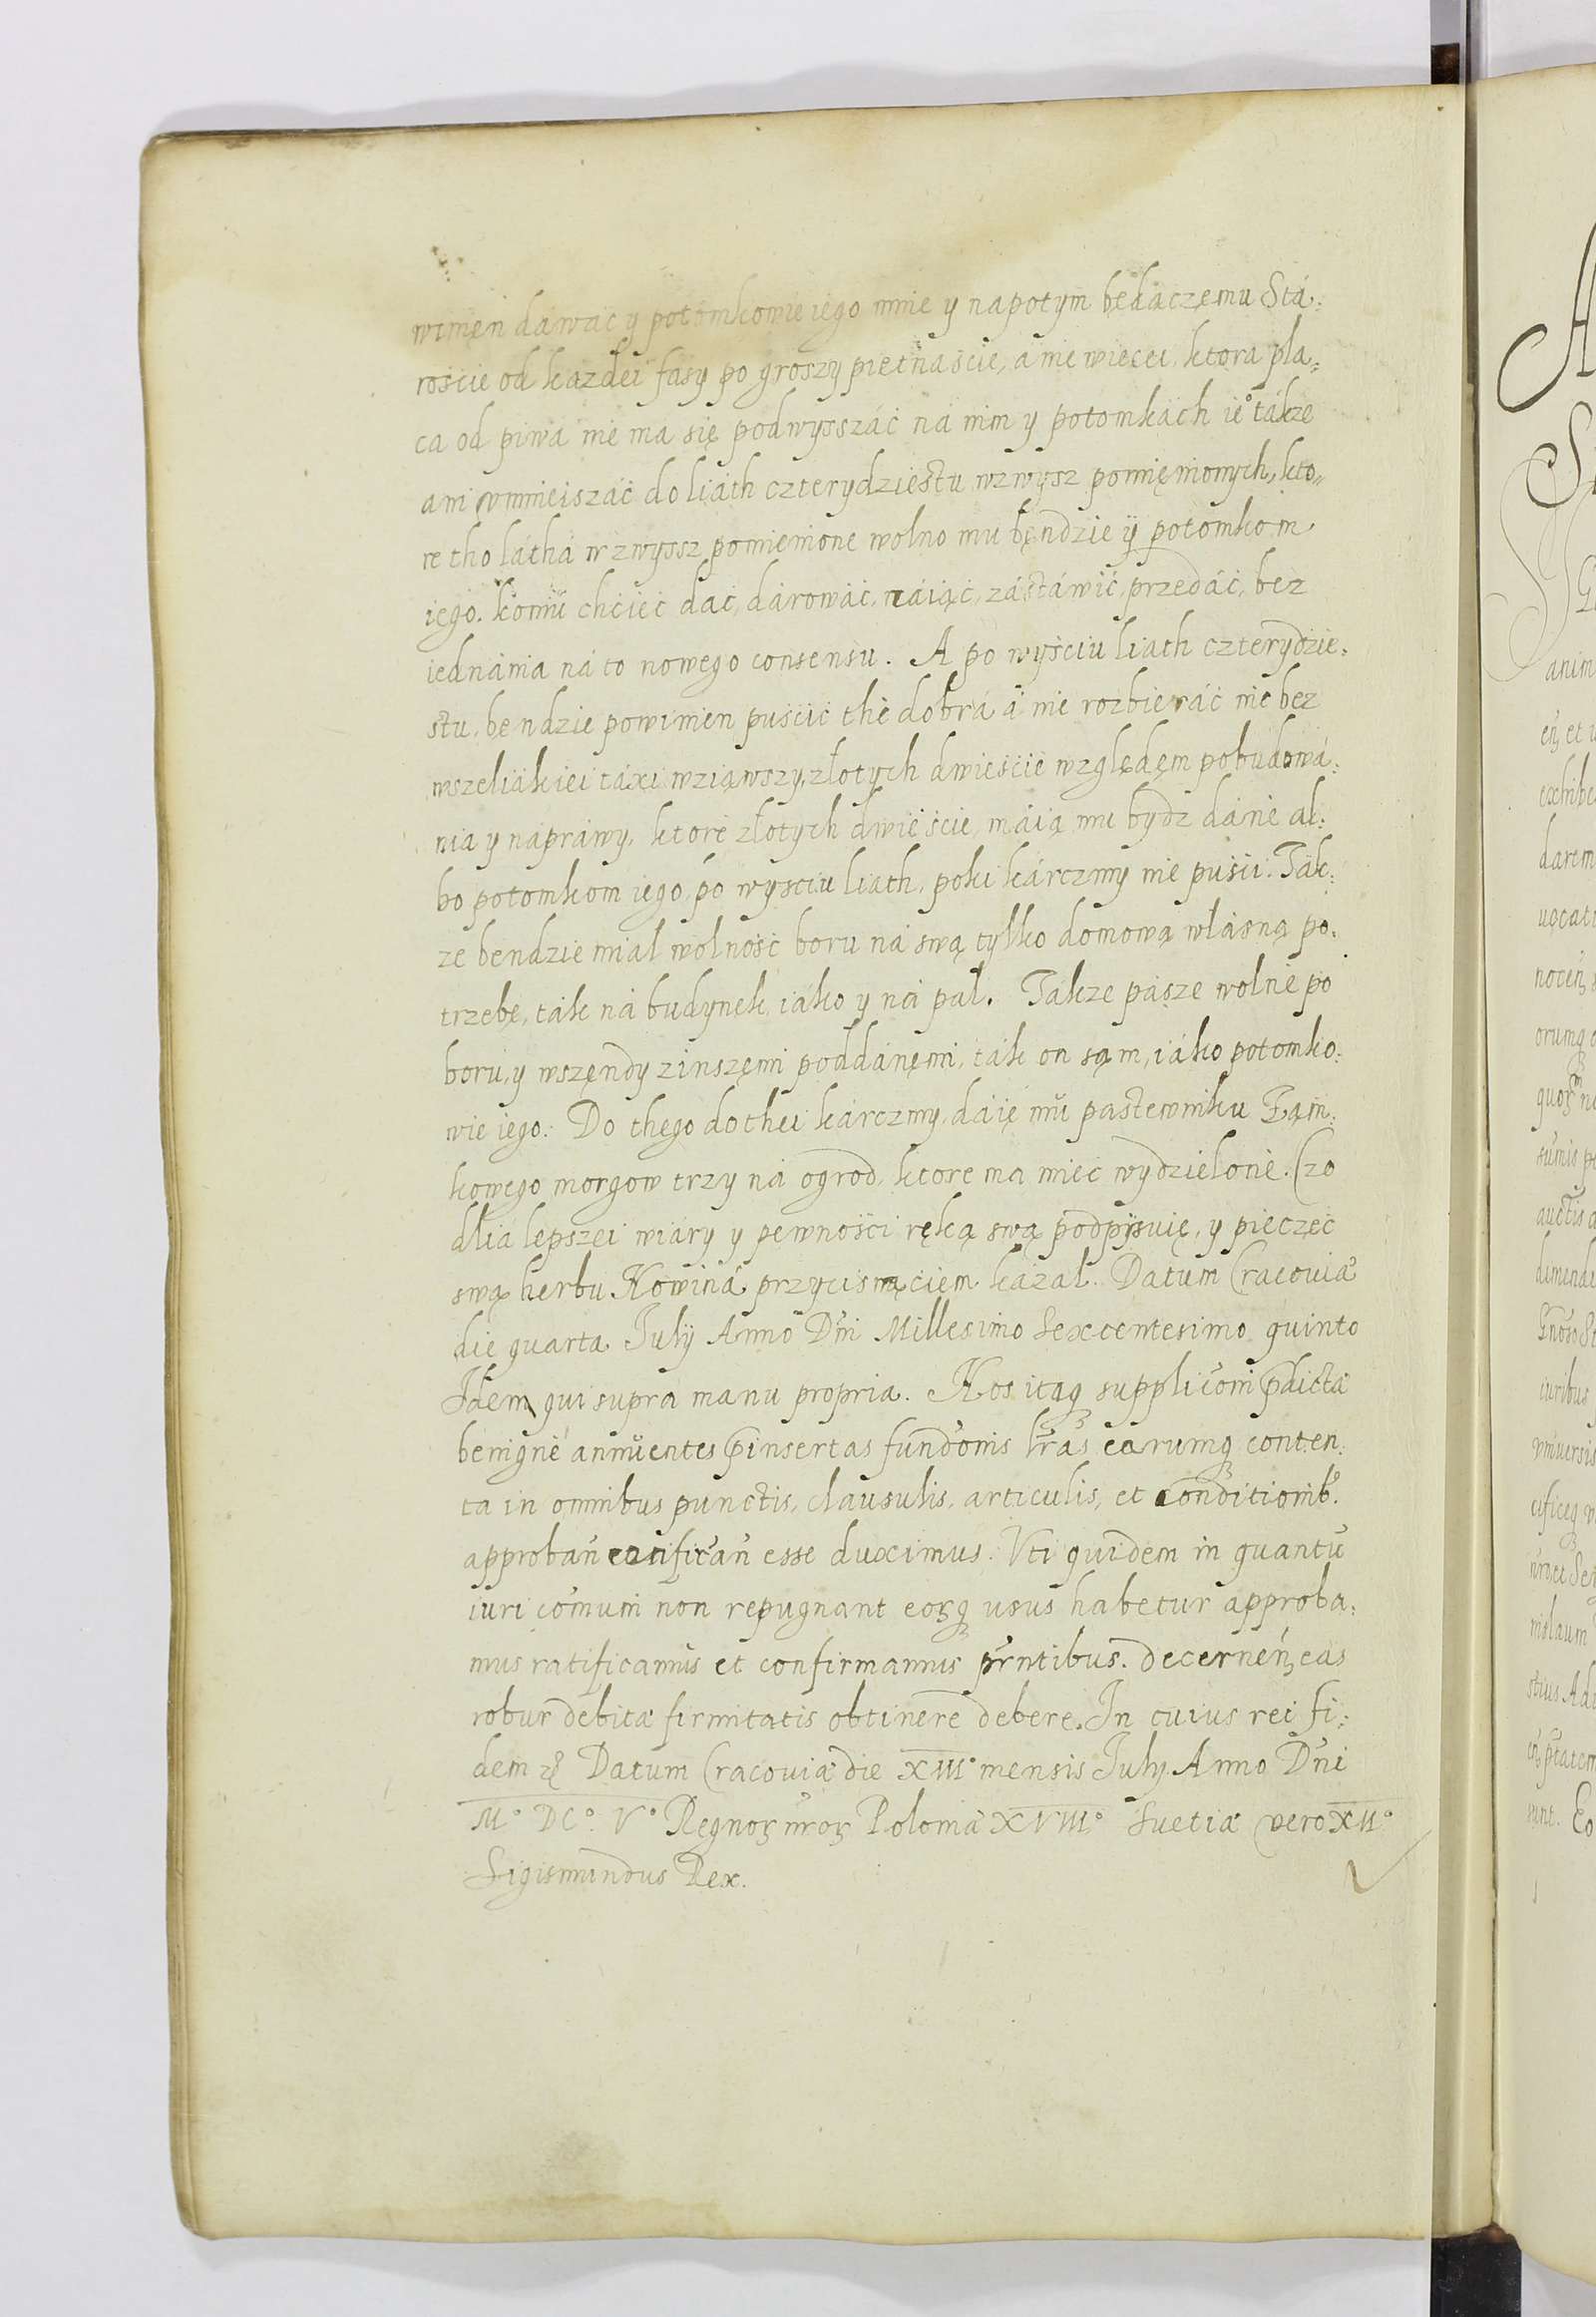 winien dawać y potomkowie iego mnie y napotym będączęmu Stá:
roście od każdei fasy po groszy piętnaście, a nie więcei, ktora pła:
ca od piwá nie ma się podwysszáć ná nim y potomkách ie° tákze
ani vmnieiszáć do liáth czterydziestu wzwysz pomięnionych, kto:
re tho láthá wzwyssz pomienione wolno mu będzie ÿ potomkom
iego. komú chcieć dać, dárowáć, náiąć, zástáwić, przedáć, bez
iednánia ná to nowego consensu. A po wyściu liath czterydzie:
stu, bendzie powinien puścić thė dobrá á nie rozbieráć nic bez
wszeliákiei táxi wziąwszy, złotych dwieście względęm pobudowá:
nia y nápráwy, ktorė złotych dwieście, máią mu bydz dánė al:
bo potomkom iego, po wysciu liath, poki kárczmy nie puści. Ták:
ze bendzie miał wolność boru ná swą tylko domową własną po:
trzebę, ták ná budynek, iáko y ná pal. Tákze pásze wolnė po
boru, y wszęndy z inszęmi poddánęmi, ták on sąm, iáko potomko:
wie iego. Do thego do thei kárczmy, dáię mú pastewniku Ząm:
kowego morgow trzy ná ogrod, ktore ma miec wydzielonė. Czo
dlia lepszei wiáry y pęwności ręką swą podpisuię, y pieczęć
swą herbu Nowiná przycisnąciem kázał. Datum Cracouiæ
die quarta Iulÿ Anno Dn̄i Millesimo Sexcentesimo quinto
Idem qui supra manu propria. Nos itaq supplicõni p̄dictæ
benignè annuentes p̄insertas fundõnis l̄ras earumq conten:
ta in omnibus punctis, clausulis, articulis, et conditionib9
approbañ ratificañ esse duximus. Vti quidem in quantū
iuri cõmuni non repugnant eorq usus habetur approba:
mus ratificamus et confirmamus p̄rntibus. decerneñ eas
robur debitæ firmitatis obtinere debere. In cuius rei fi:
dem ꝛc̃ Datum Cracouiæ die XIII° mensis Iulÿ Anno Dn̄i
M° DC° V° Regnoꝝ n̄roꝝ Poloniæ XVIII° Suetiæ vero XII°
Sigismundus Rex.